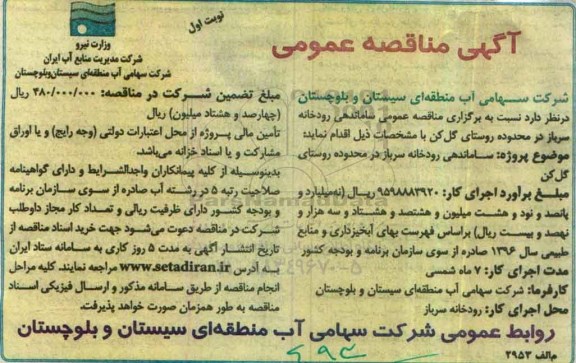 نوبت اول
وزارت نیرو
شرکت مدیریت منابع آب ایران
شرکت سهامی آب منطقه‌ای سیستان‌وبلوچستان
آگهی مناقصه عمومی
شرکت سهامی آب منطقه‌ای سیستان و بلوچستان
درنظر دارد نسبت به برگزاری مناقصه عمومی ساماندهی رودخانه
سرباز در محدوده روستای گل‌کن با مشخصات ذیل اقدام نماید:
موضوع پروژه: ساماندهی رودخانه سرباز در محدوده روستای
گل‌کن
مبلغ برآورد اجرای کار: ۹۵۹۸۸۸۳۹۲۰ ریال (نه‌میلیارد و
پانصد و نود و هشت میلیون و هشتصد و هشتاد و سه هزار و
نهصد و بیست ریال) براساس فهرست بهای آبخیزداری و منابع
طبیعی سال ۱۳۹۶ صادره از سوی سازمان برنامه و بودجه کشور
مدت اجرای کار: ۷ ماه شمسی
کارفرما: شرکت سهامی آب منطقه‌ای سیستان و بلوچستان
محل اجرای کار: رودخانه سرباز
مبلغ تضمین شرکت در مناقصه: ۴۸۰/۰۰۰/۰۰۰ ریال
(چهارصد و هشتاد میلیون) ریال
تأمین مالی پروژه از محل اعتبارات دولتی (وجه رایج) و یا اوراق
مشارکت و یا اسناد خزانه می‌باشد.
بدینوسیله از کلیه پیمانکاران واجدالشرایط و دارای گواهینامه
صلاحیت رتبه ۵ در رشته آب صادره از سوی سازمان برنامه
و بودجه کشور دارای ظرفیت ریالی و تعداد کار مجاز داوطلب
شرکت در مناقصه دعوت می‌شود جهت خرید اسناد مناقصه از
تاریخ انتشار آگهی به مدت ۵ روز کاری به سامانه ستاد ایران
به آدرس www.setadiran.ir مراجعه نمایند. کلیه مراحل
انجام مناقصه از طریق سامانه مذکور و ارسال فیزیکی اسناد
مناقصه به طور همزمان صورت خواهد پذیرفت.
روابط عمومی شرکت سهامی آب منطقه‌ای سیستان و بلوچستان
م‌الف ۲۹۵۳